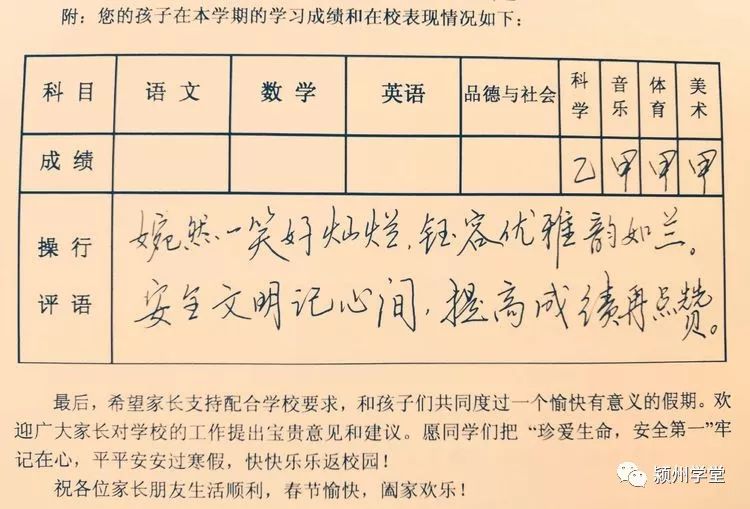 附：您的孩子在本学期的学习成绩和在校表现情况如下：
科目 语文 数学 英语 品德与社会 科学 音乐 体育 美术
成绩 乙 甲 甲 甲
操行评语
婉然一笑好灿烂，钰容优雅韵如兰。
安全文明记心间，提高成绩再点赞。
最后，希望家长支持配合学校要求，和孩子们共同度过一个愉快有意义的假期。欢
迎广大家长对学校的工作提出宝贵意见和建议。愿同学们把“珍爱生命，安全第一”牢
记在心，平平安安过寒假，快快乐乐返校园！
祝各位家长朋友生活顺利，春节愉快，阖家欢乐！
颍州学堂